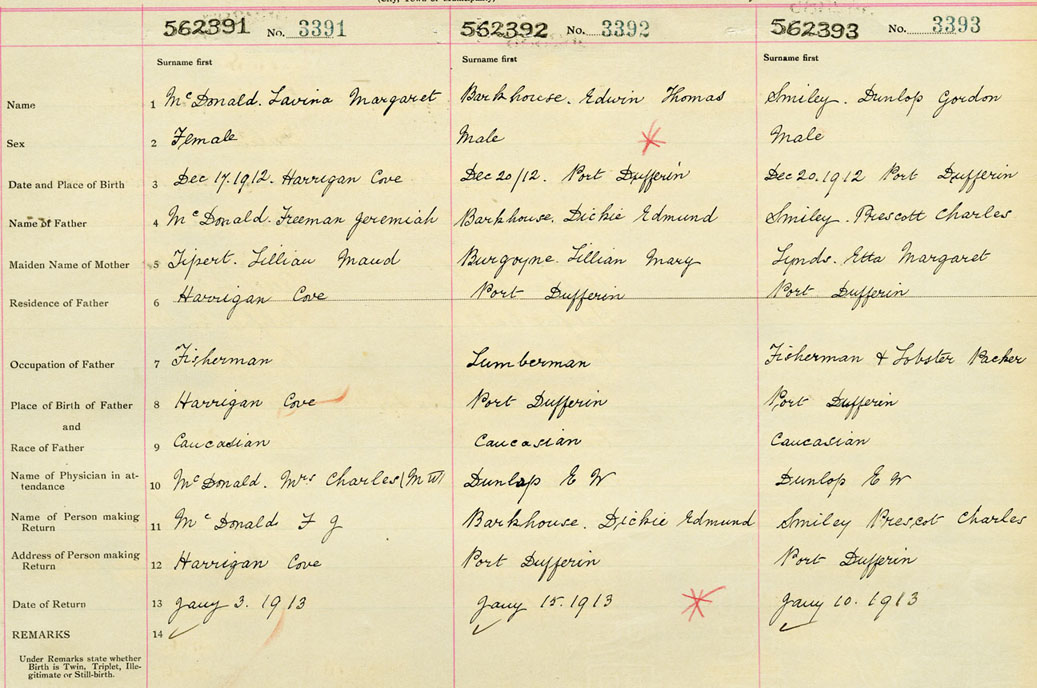 (City, Town or Municipality)
562391 No. 3391 562392 No. 3392 562393 No. 3393
Surname first Surname first Surname first
Name 1 McDonald. Lavina Margaret Barkhouse. Edwin Thomas Smiley. Dunlop Gordon
Sex 2 Female Male Male
Date and Place of Birth 3 Dec 17.1912. Harrigan Cove Dec 20/12. Port Dufferin Dec 20.1912 Port Dufferin
Name of Father 4 McDonald. Freeman Jeremiah Barkhouse. Dickie Edmund Smiley. Prescott Charles
Maiden Name of Mother 5 Tipert. Lillian Maud Burgoyne. Lillian Mary Lynds. Etta Margaret
Residence of Father 6 Harrigan Cove Port Dufferin Port Dufferin
Occupation of Father 7 Fisherman Lumberman Fisherman & Lobster Packer
Place of Birth of Father 8 Harrigan Cove Port Dufferin Port Dufferin
and
Race of Father 9 Caucasian Caucasian Caucasian
Name of Physician in at-
tendance 10 McDonald. Mrs Charles (M W) Dunlop E W Dunlop E W
Name of Person making
Return 11 McDonald F J Barkhouse. Dickie Edmund Smiley Prescot Charles
Address of Person making
Return 12 Harrigan Cove Port Dufferin Port Dufferin
Date of Return 13 Jany 3. 1913 Jany 15. 1913 Jany 10. 1913
REMARKS 14
Under Remarks state whether
Birth is Twin, Triplet, Ille-
gitimate or Still-birth.